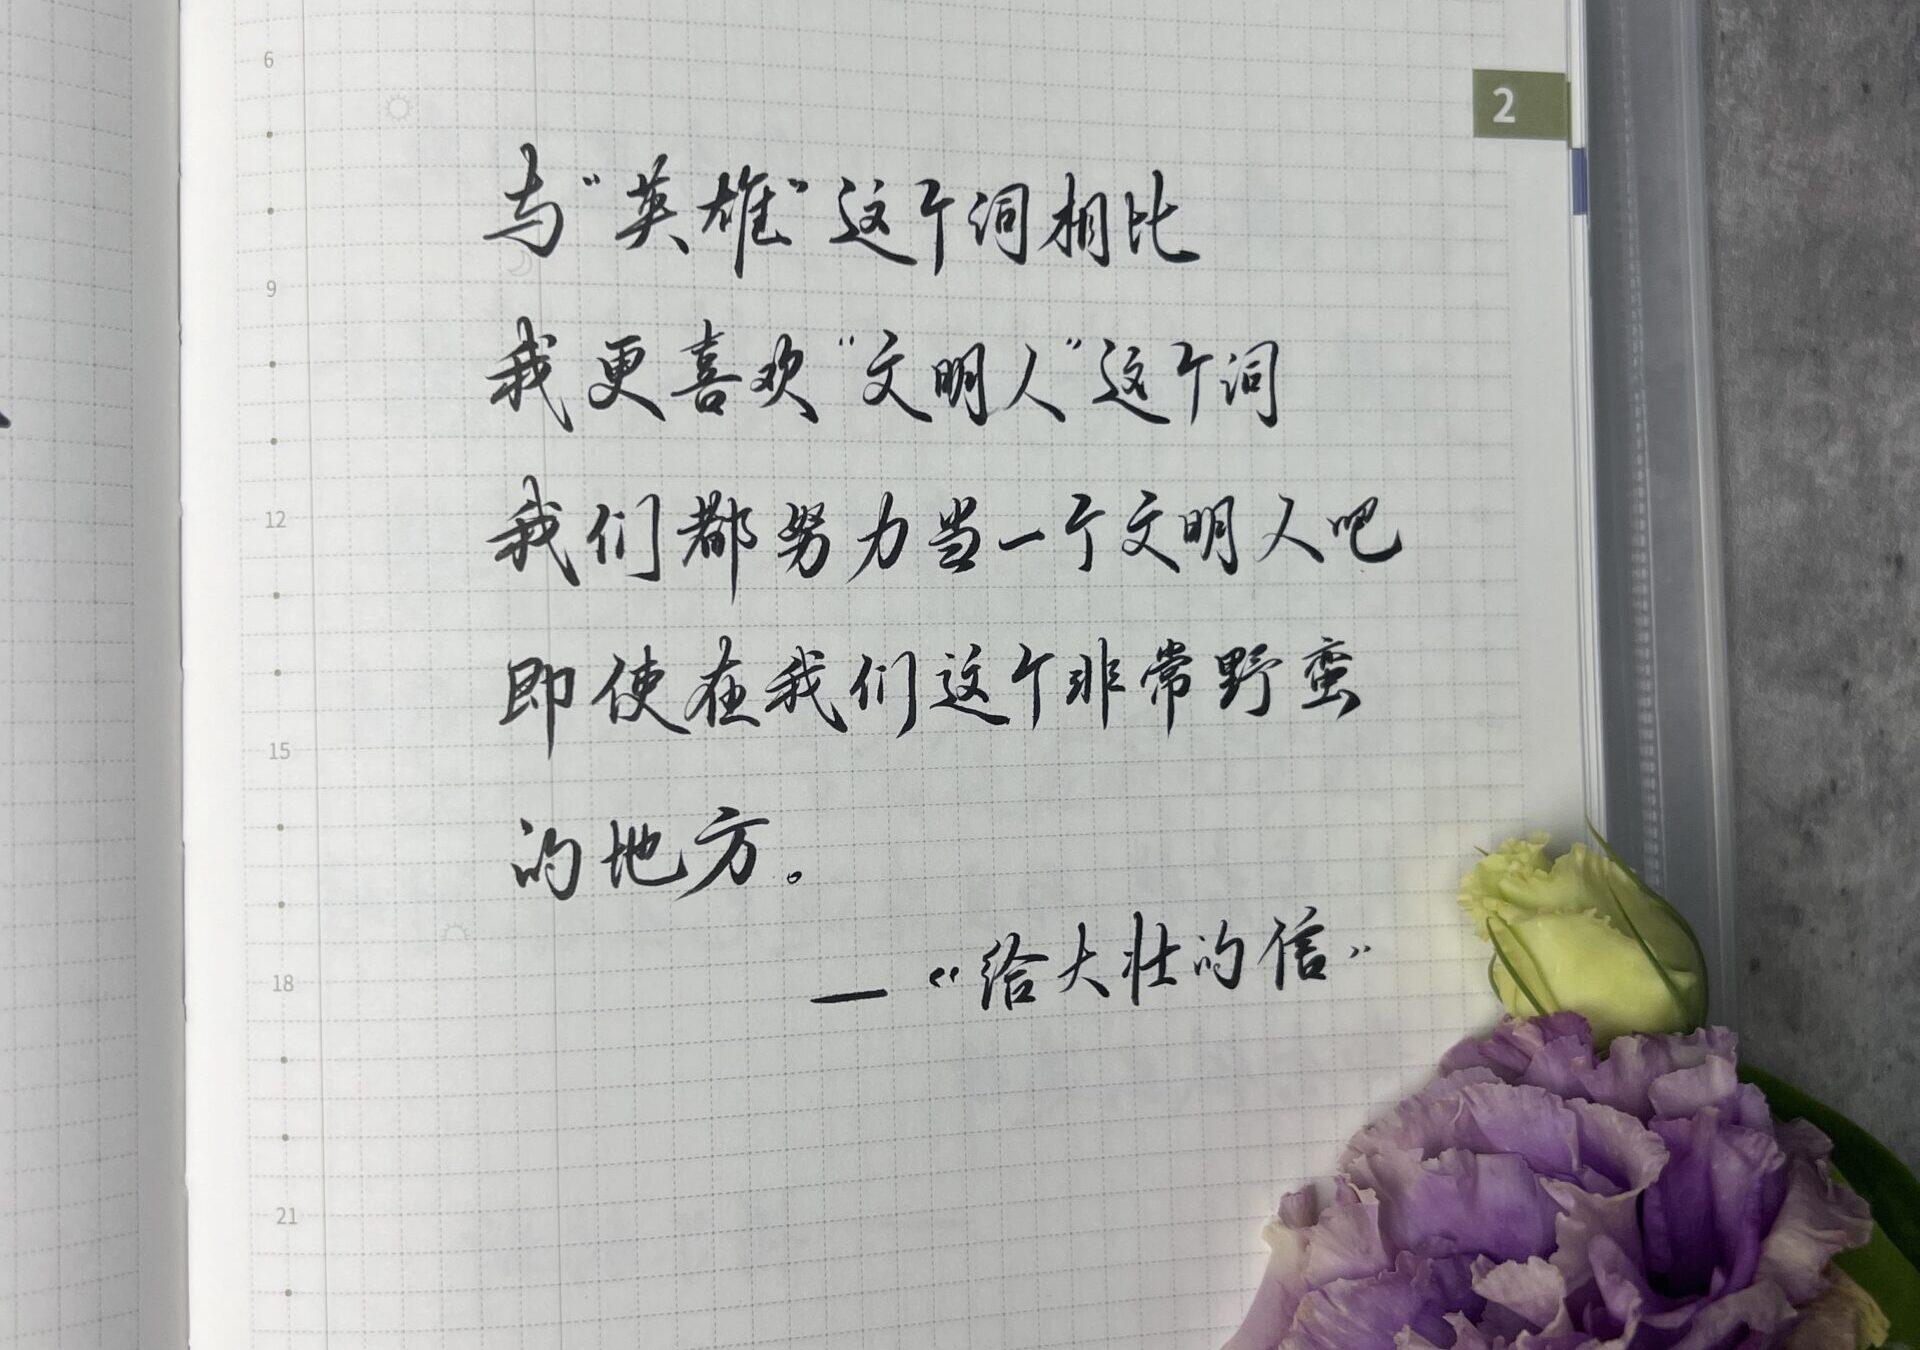 2
6
与“英雄”这个词相比
9
我更喜欢“文明人”这个词
12
我们都努力当一个文明人吧
即使在我们这个非常野蛮
15
的地方。
18
—“给大壮的信”
21